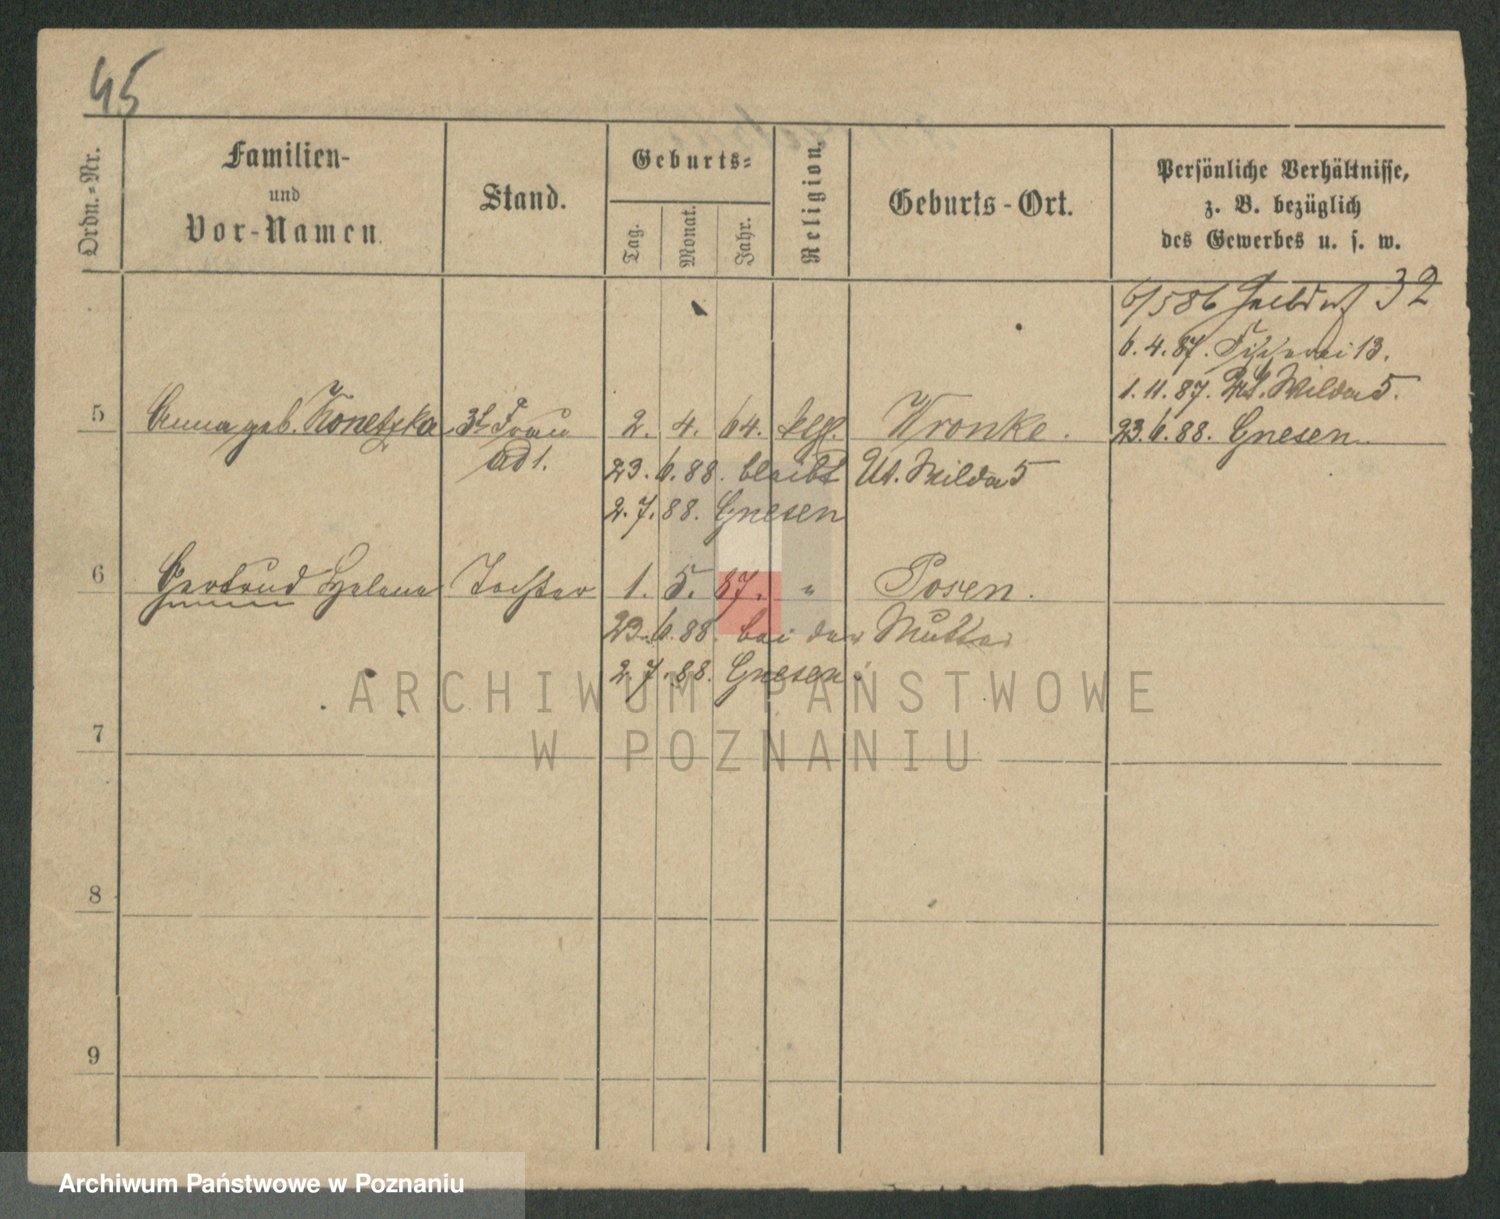 45
Ordn.-Nr.
Familien-
und
Vor-Namen.
Stand.
Geburts-
Tag.
Monat.
Jahr.
Religion.
Geburts-Ort.
Persönliche Verhältnisse,
z. B. bezüglich
des Gewerbes u. s. w.
6/5 86 32
6. 4. 87. Fischerei 13.
1. 11. 87. Wilda 5.
5 Anna geb. Konetzka Frau 2. 4. 64. Wronke. 23. 6. 88. Gnesen.
ad 1. 23. 6. 88. bleibt Ut. Wilda 5
2. 7. 88. Gnesen
6 Gertrud Helena Tochter 1. 5. 87. " Posen.
23. 6. 88. bei der Mutter
2. 7. 88. Gnesen.
ARCHIWUM PAŃSTWOWE
7
W POZNANIU
8
9
Archiwum Państwowe w Poznaniu